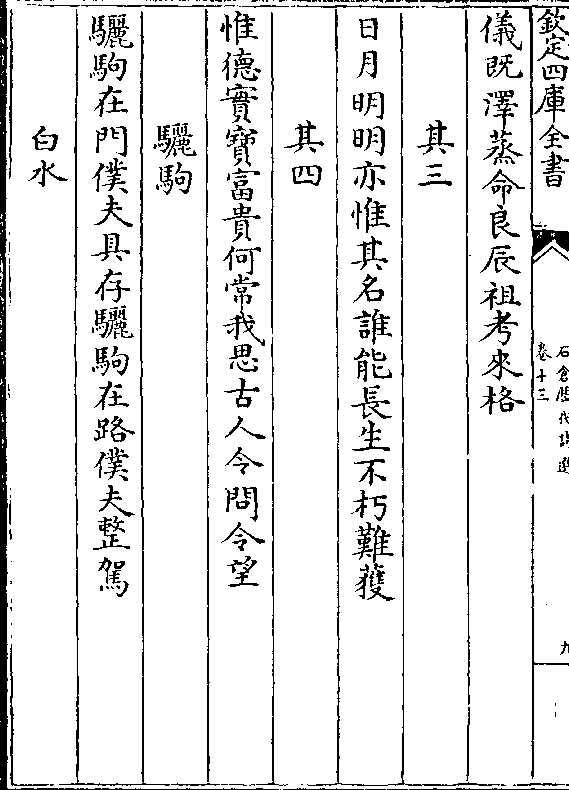 欽定四庫全書
石倉歷代詩選
卷十三
九
儀既澤蒸命良辰祖考來格
其三
日月明明亦惟其名誰能長生不朽難獲
其四
惟德實寶富貴何常我思古人令問令望
驪駒
驪駒在門僕夫具存驪駒在路僕夫整駕
白水